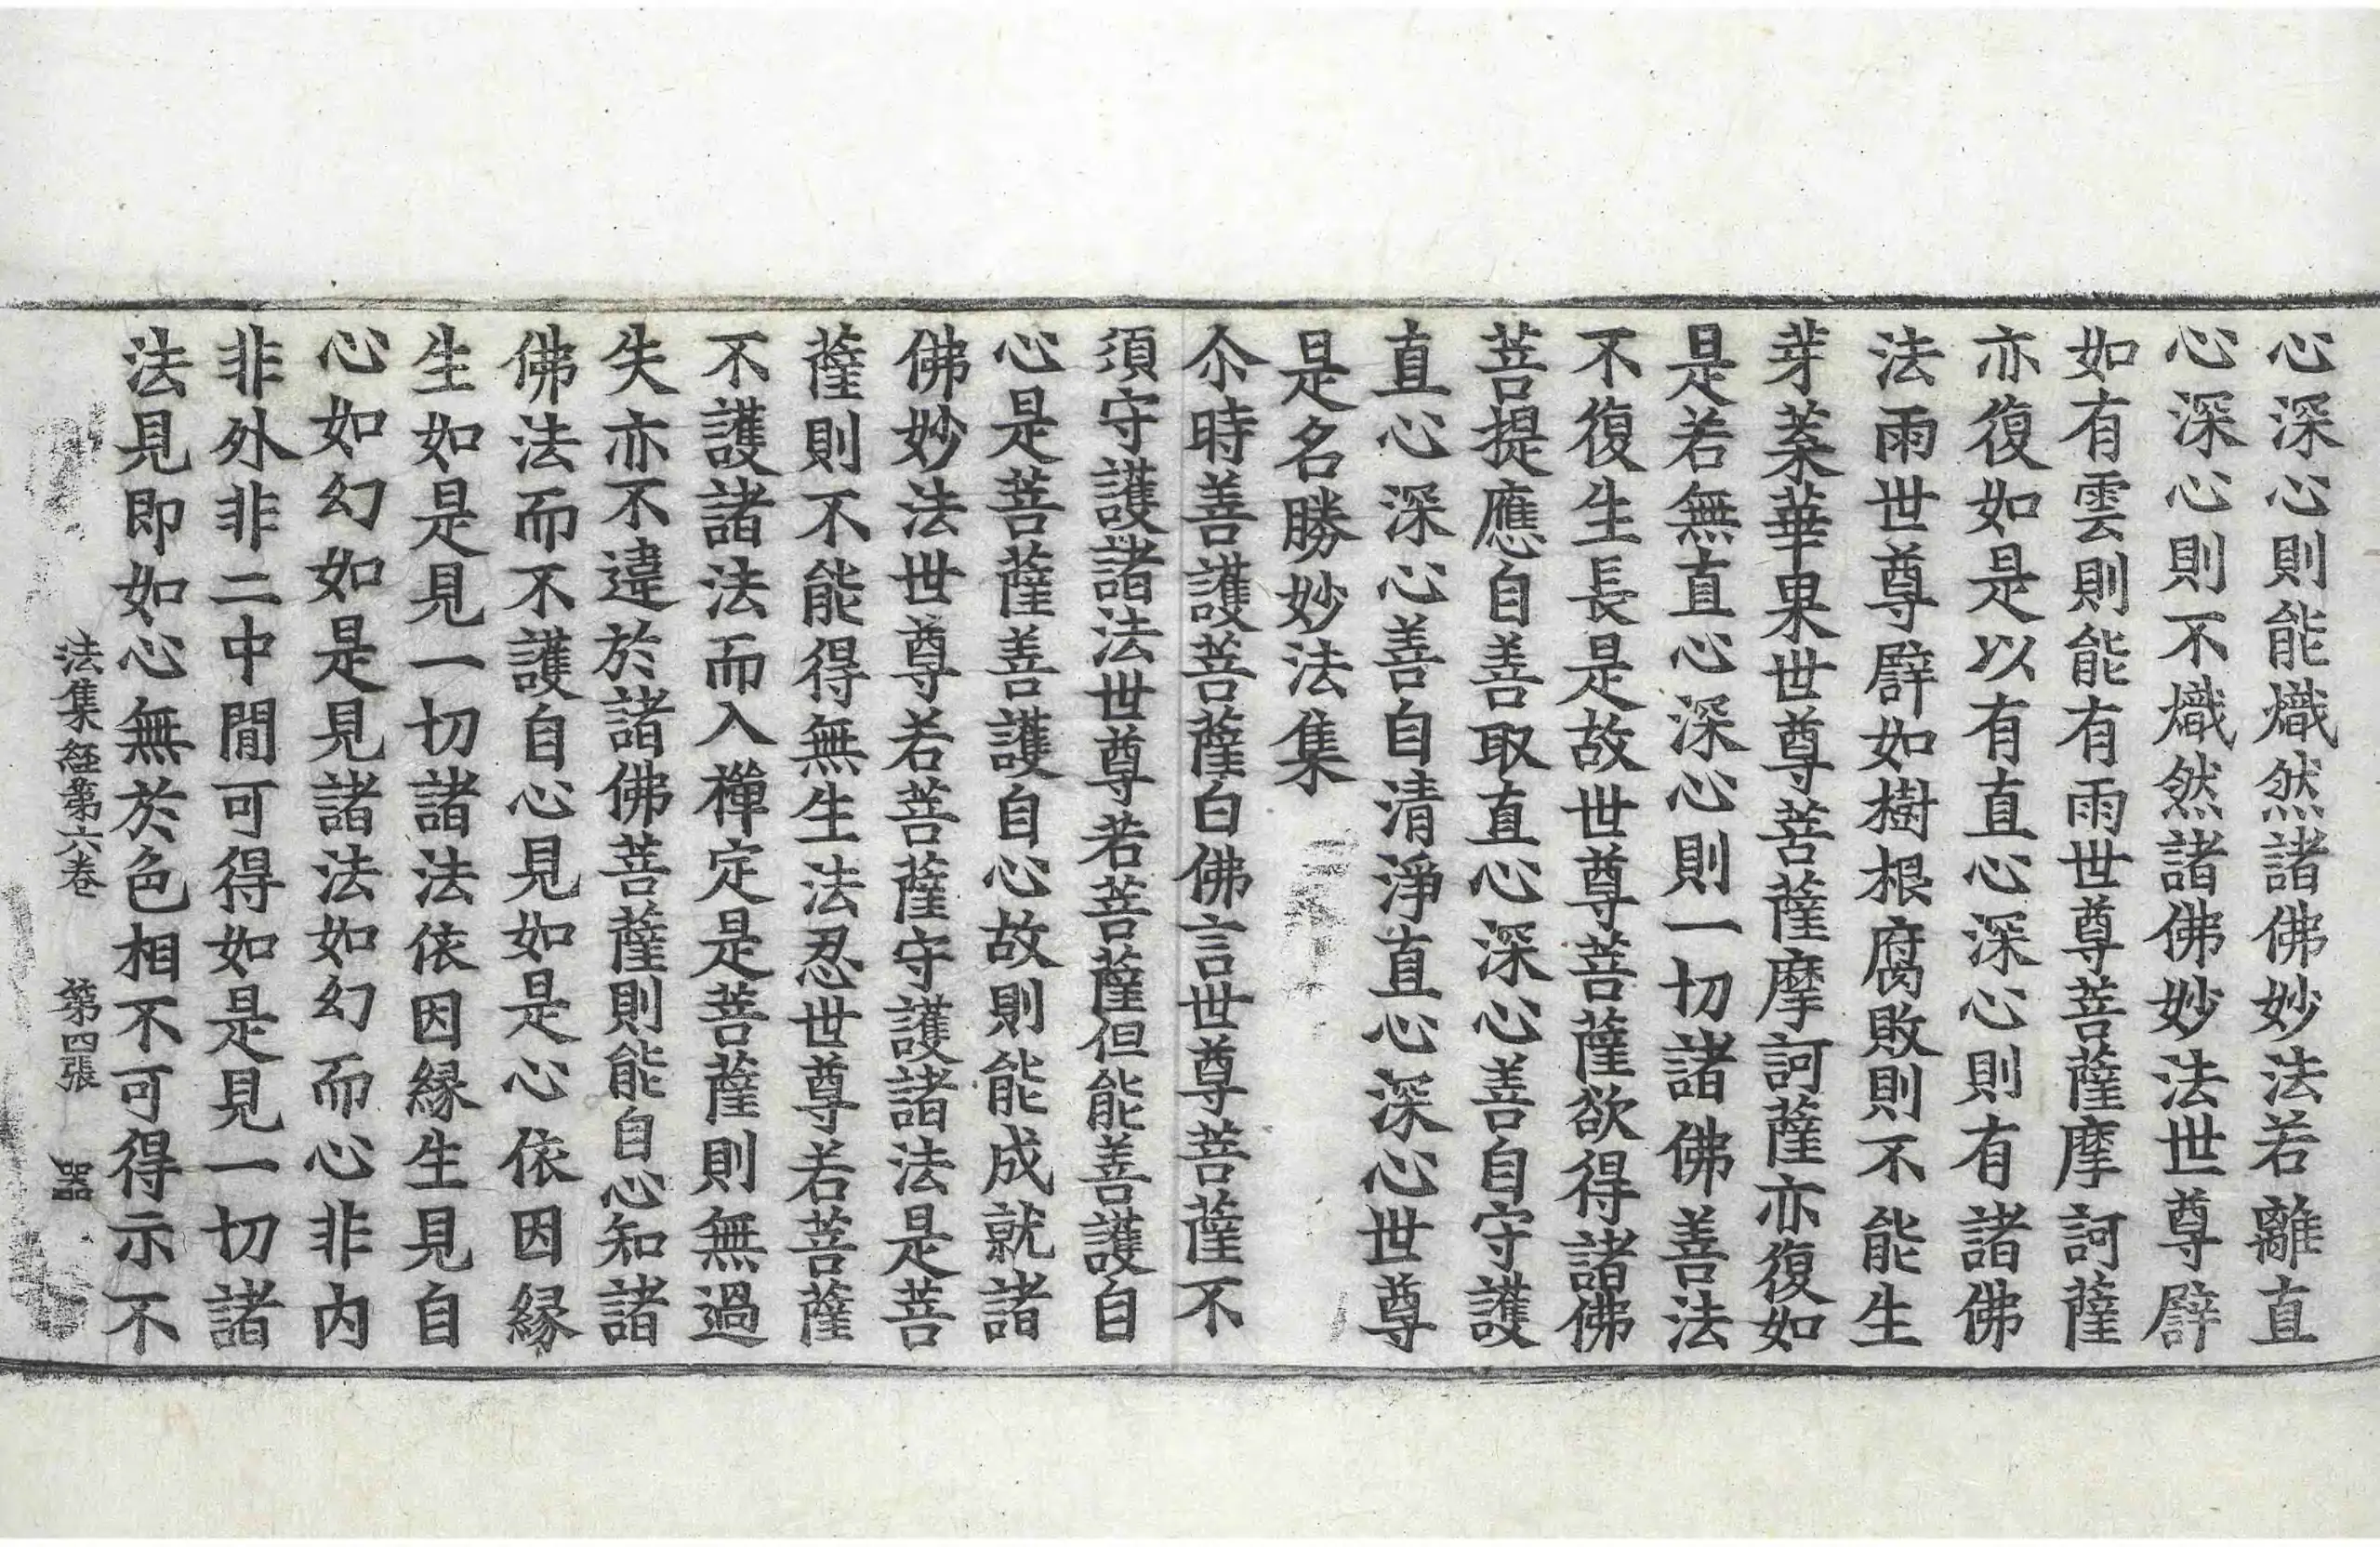 心深心則能熾然諸佛妙法若離直
心深心則不熾然諸佛妙法世尊辟
如有雲則能有雨世尊菩薩摩訶薩
亦復如是以有直心深心則有諸佛
法雨世尊辟如樹根腐敗則不能生
芽葉華果世尊菩薩摩訶薩亦復如
是若無直心深心則一切諸佛善法
不復生長是故世尊菩薩欲得諸佛
菩提應自善取直心深心善自守護
直心深心善自清淨直心深心世尊
是名勝妙法集
尒時善護菩薩白佛言世尊菩薩不
須守護諸法世尊若菩薩但能善護自
心是菩薩善護自心故則能成就諸
佛妙法世尊若菩薩守護諸法是菩
薩則不能得無生法忍世尊若菩薩
不護諸法而入禪定是菩薩則無過
失亦不違於諸佛菩薩則能自心知諸
佛法而不護自心見如是心依因緣
生如是見一切諸法依因緣生見自
心如幻如是見諸法如幻而心非內
非外非二中間可得如是見一切諸
法見即如心無於色相不可得示不
法集経第六卷 第四張 器